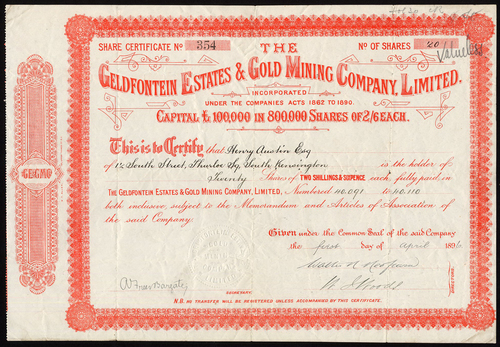 Valueless
SHARE CERTIFICATE No 354
THE
No OF SHARES 20
GELDFONTEIN ESTATES & GOLD MINING COMPANY, LIMITED.
INCORPORATED
UNDER THE COMPANIES ACTS 1862 TO 1890.
CAPITAL £100,000 IN 800,000 SHARES OF 2/6 EACH.
This is to Certify that Henry Austin Esq
of 12 South Street, Thurloe Sq, South Kensington is the holder of
Twenty Shares of TWO SHILLINGS & SIXPENCE each, fully paid, in
THE GELDFONTEIN ESTATES & GOLD MINING COMPANY, LIMITED, Numbered 110,091 to 110,110
both inclusive, subject to the Memorandum and Articles of Association of
the said Company.
Given under the Common Seal of the said Company
the first day of April 1896
SECRETARY.
DIRECTORS.
N.B. NO TRANSFER WILL BE REGISTERED UNLESS ACCOMPANIED BY THIS CERTIFICATE.